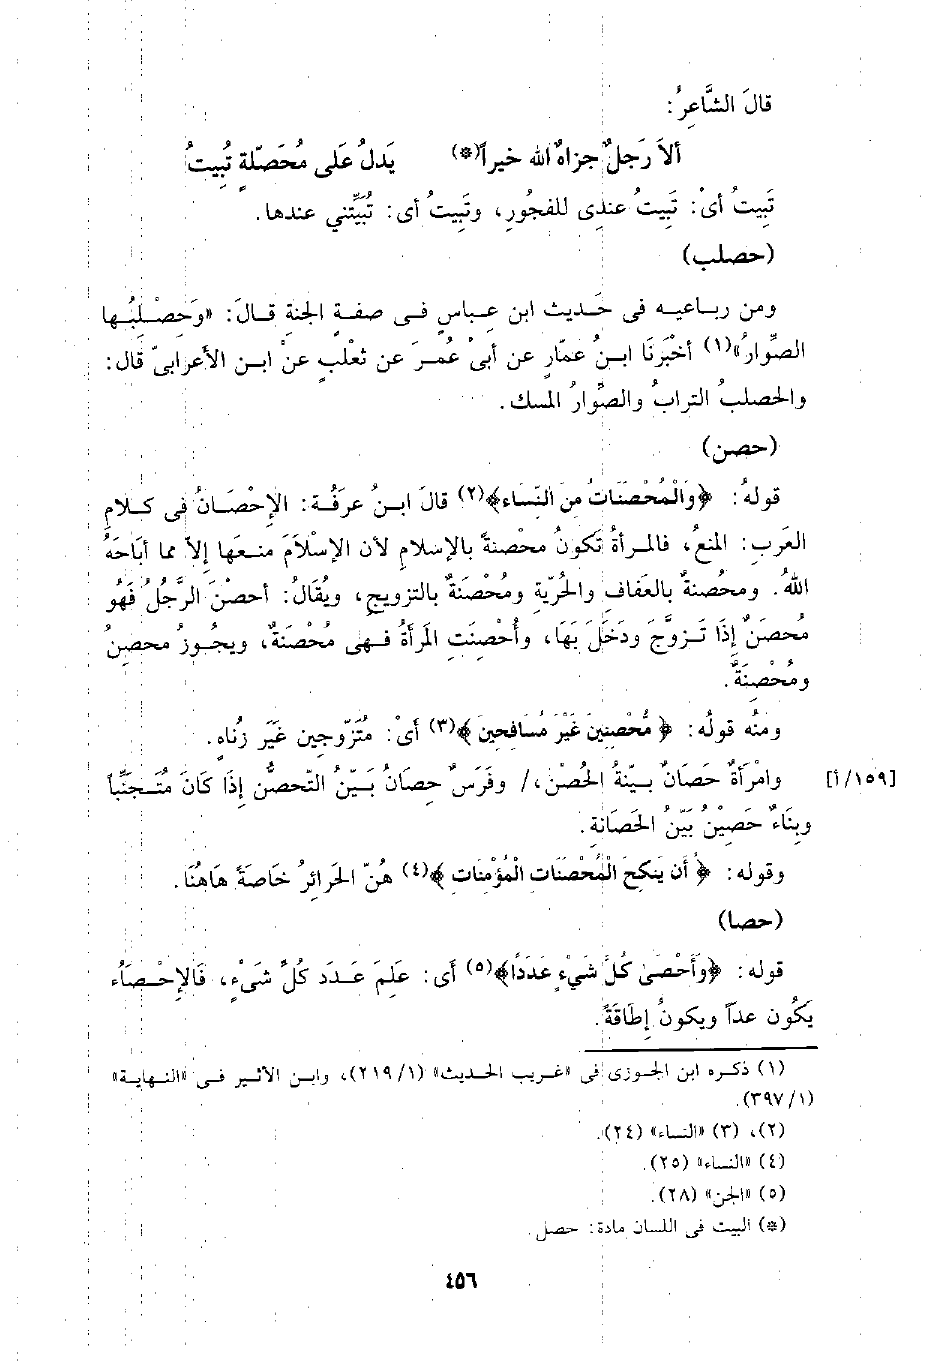 قالَ الشَّاعِرُ:
ألاَ رَجلٌ جزاهُ الله خيراً(*) يَدلُ عَلى مُحَصّلةٍ تُبيتُ
تَبِيتُ أىْ: تَبِيتُ عندِى للفجُورِ، وتَبِيتُ أى: تُبَيِّتني عندها.
(حصلب)
ومن رباعيه فى حَديث ابن عِباس فى صفةِ الجنةِ قال: «وَحِصْلِبُها
الصِّوارُ»(١) أخبَرنَا ابنُ عمّار عن أبىْ عُمرَ عن ثعْلبٍ عنْ ابن الأعرابىّ قال:
والحصلبُ الترابُ والصِّوارُ المسك.
(حصن)
قولهُ: ﴿وَالْمُحْصَنَاتُ منَ النِّسَاءِ﴾(٢) قالَ ابنُ عرفَة: الإحْصَانُ فى كلامِ
العَربِ: المنعُ، فالمرأةُ تَكونُ محْصنةً بالإسلامِ لأن الإسْلاَمَ منعَها إلاّ مما أبَاحَهُ
اللهُ. ومحْصنةٌ بالعَفافِ والحُريّةِ ومُحْصَنَةٌ بالتزويجِ، ويُقَالُ: أحصْنَ الرَّجُلُ فَهُو
مُحصَنٌ إذَا تَزوَّجَ ودَخَلَ بَهَا، وأُحْصِنَتِ المَرأةُ فهى مُحْصَنَةٌ، ويجُوزُ محصِنٌ
ومُحْصِنَةٌ.
ومنُه قولُه: ﴿مُّحْصِنِينَ غَيْرَ مُسَافِحِينَ﴾(٣) أىْ: مُتَزّوجينِ غَيَر زُناهٍ.
وامْرَأةٌ حَصَانٌ بيِّنةُ الحُصْنِ،/ وفَرَسٌ حِصَانٌ بَيّنُ التّحصُّنِ إذَا كَانَ مُتَجنِّباً [١٥٩/أ]
وبنَاءٌ حَصِيْنٌ بَينُ الحَصَانَةِ.
وقوله: ﴿أَن يَنكِحَ الْمُحْصَنَاتِ الْمُؤْمِنَاتِ﴾(٤) هُنّ الحَرائرُ خَاصَةً هَاهُنَا.
(حصا)
قوله: ﴿وَأَحْصَىٰ كُلَّ شَيْءٍ عَدَدًا﴾(٥) أى: عَلِمَ عَدَد كُلِّ شَىْءٍ، فَالإحْصَاُء
يَكُون عداً ويكونُ إطَاقَةً.
(١) ذكره ابن الجوزى فى «غريب الحديث» (٢١٩/١)، وابن الأثير فى «النهاية»
(٣٩٧/١).
(٢)، (٣) «النساء» (٢٤).
(٤) «النساء» (٢٥).
(٥) «الجن» (٢٨).
(*) البيت فى اللسان مادة: حصل.
٤٥٦